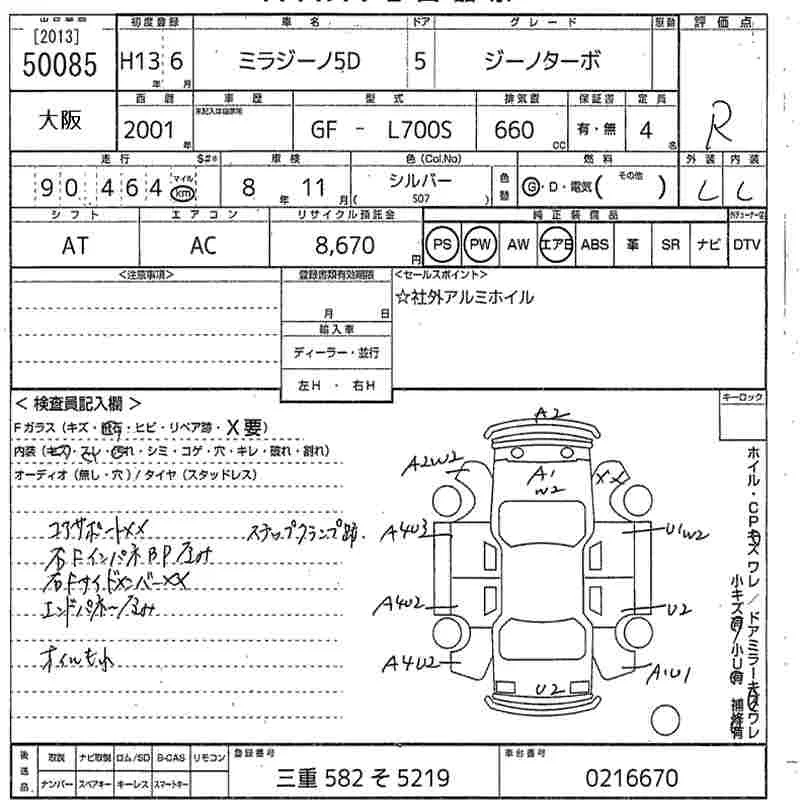 出品番号 初度登録 車名 ドア グレード 駆動 評価点
[2013]
50085 H13年 6月 ミラジーノ5D 5 ジーノターボ
R
大阪 西暦 車歴 型式 排気量 保証書 定員
未記入は自家用
2001年 GF - L700S 660cc 有・無 4名
走行 S#* 車検 色(Col.No) 色替 燃料 外装 内装
90,464 マイル km 8年 11月 シルバー ( S07 ) G・D・電気( その他 ) し し
シフト エアコン リサイクル預託金 純正装備品
AT AC 8,670円 PS PW AW エアB ABS 革 SR ナビ DTV
<注意事項> 登録書類有効期限 <セールスポイント>
月 日 ☆社外アルミホイル
輸入車
ディーラー・並行
左H ・ 右H
< 検査員記入欄 > キーロック
Fガラス (キズ・飛石・ヒビ・リペア跡・X要)
内装 (キズ・スレ・汚れ・シミ・コゲ・穴・キレ・破れ・割れ)
オーディオ (無し・穴) / タイヤ (スタッドレス)
コアサポートXX ステップクランプ跡.
右FインパネBP歪み
右FサイドメンバーXX
エンドパネー歪み
オイルもれ
A2
A1
W2
A2W2 XX
A4U3 U1W2
A4U2 U2
A4U2 A1U1
U2
ホイル・CPキズ ワレ / ドアミラーキズワレ
小キズ有 / 小U有 補修有
後送品 取説 ナビ取説 ロム/SD B-CAS リモコン 登録番号 車台番号
ナンバー スペアキー キーレス スマートキー 三重 582 そ 5219 0216670